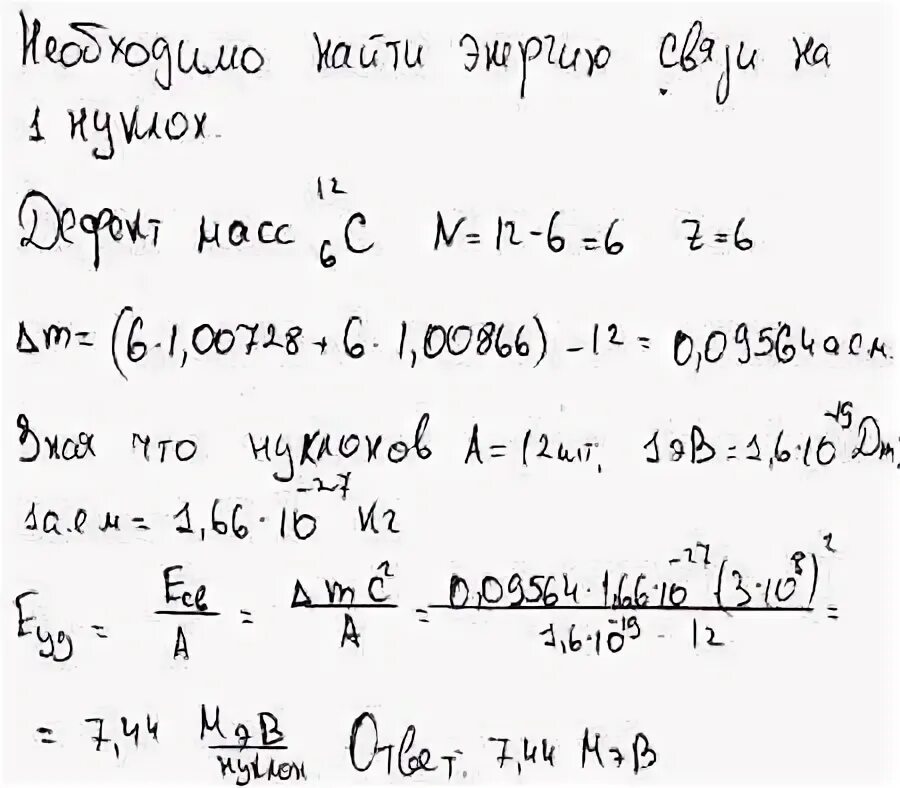 Необходимо найти энергию связи на
1 нуклон.
Дефект масс ¹²₆C N=12-6=6 Z=6
Δm=(6·1,00728+6·1,00866)-12=0,09564 а е м.
Зная что нуклонов A=12шт. 1эВ=1,6·10⁻¹⁹Дж.
1а.е м=1,66·10⁻²⁷ кг
Eуд = Eсв/A = Δmc²/A = 0,09564·1,66·10⁻²⁷(3·10⁸)²/1,6·10⁻¹⁹·12 =
= 7,44 МэВ/нуклон Ответ. 7,44 МэВ